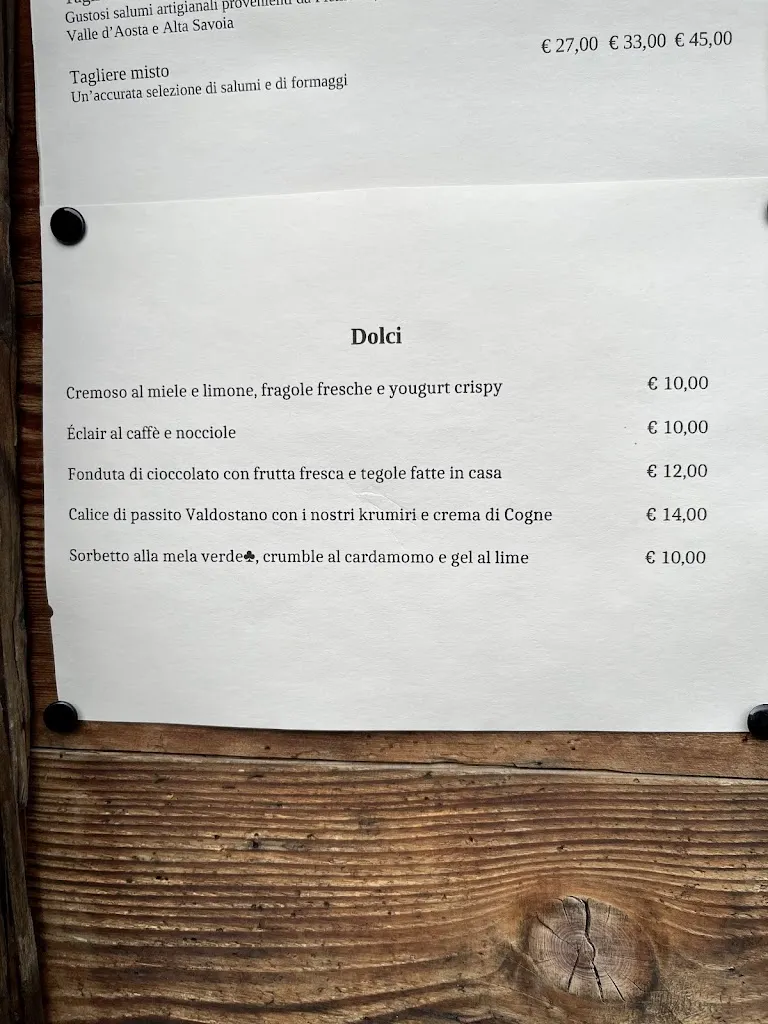 Gustosi salumi artigianali provenienti da
Valle d'Aosta e Alta Savoia
€ 27,00 € 33,00 € 45,00
Tagliere misto
Un'accurata selezione di salumi e di formaggi
Dolci
Cremoso al miele e limone, fragole fresche e yougurt crispy € 10,00
Éclair al caffè e nocciole € 10,00
Fonduta di cioccolato con frutta fresca e tegole fatte in casa € 12,00
Calice di passito Valdostano con i nostri krumiri e crema di Cogne € 14,00
Sorbetto alla mela verde♣, crumble al cardamomo e gel al lime € 10,00